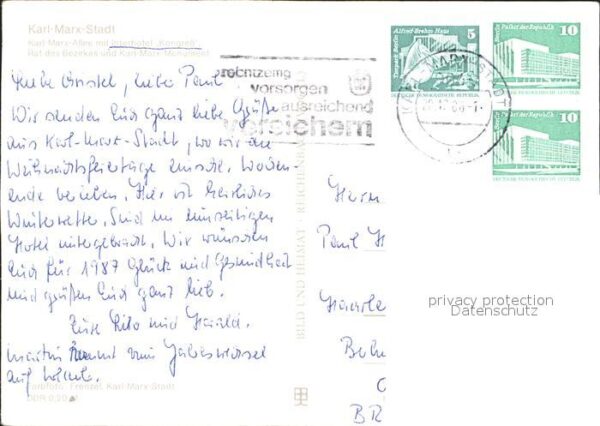 Karl-Marx-Stadt
Karl-Marx-Allee mit Interhotel „Kongreß“
Rat des Bezirkes und Karl-Marx-Monument
Liebe Christel, lieber Paul
Wir senden Euch ganz liebe Grüße
aus Karl-Marx-Stadt, wo wir die
Weihnachtsfeiertage einschl. Wochen-
ende verleben. Hier ist herrliches
Winterwetter. Sind im
Hotel untergebracht. Wir wünschen
Euch für 1987 Glück und Gesundheit
und grüßen Euch ganz lieb.
Eure Rita und Harald.
Martin kommt zum Jahreswechsel
auf
Farbfoto: Frenzel, Karl-Marx-Stadt
DDR 0,20 M
BILD UND HEIMAT REICHENBACH
rechtzeitig
vorsorgen
ausreichend
versichern
Alfred-Brehm Haus
5
Tierpark Berlin
DEUTSCHE DEMOKRATISCHE REPUBLIK
Berlin Palast der Republik
10
DEUTSCHE DEMOKRATISCHE REPUBLIK
Berlin Palast der Republik
10
DEUTSCHE DEMOKRATISCHE REPUBLIK
KARL-MARX-STADT
Herrn
Paul H
Berl
BR
privacy protection
Datenschutz